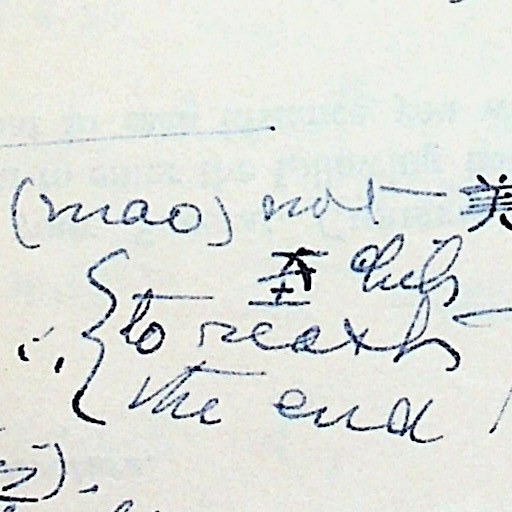 (mao) not
至 chih
to reach
the end